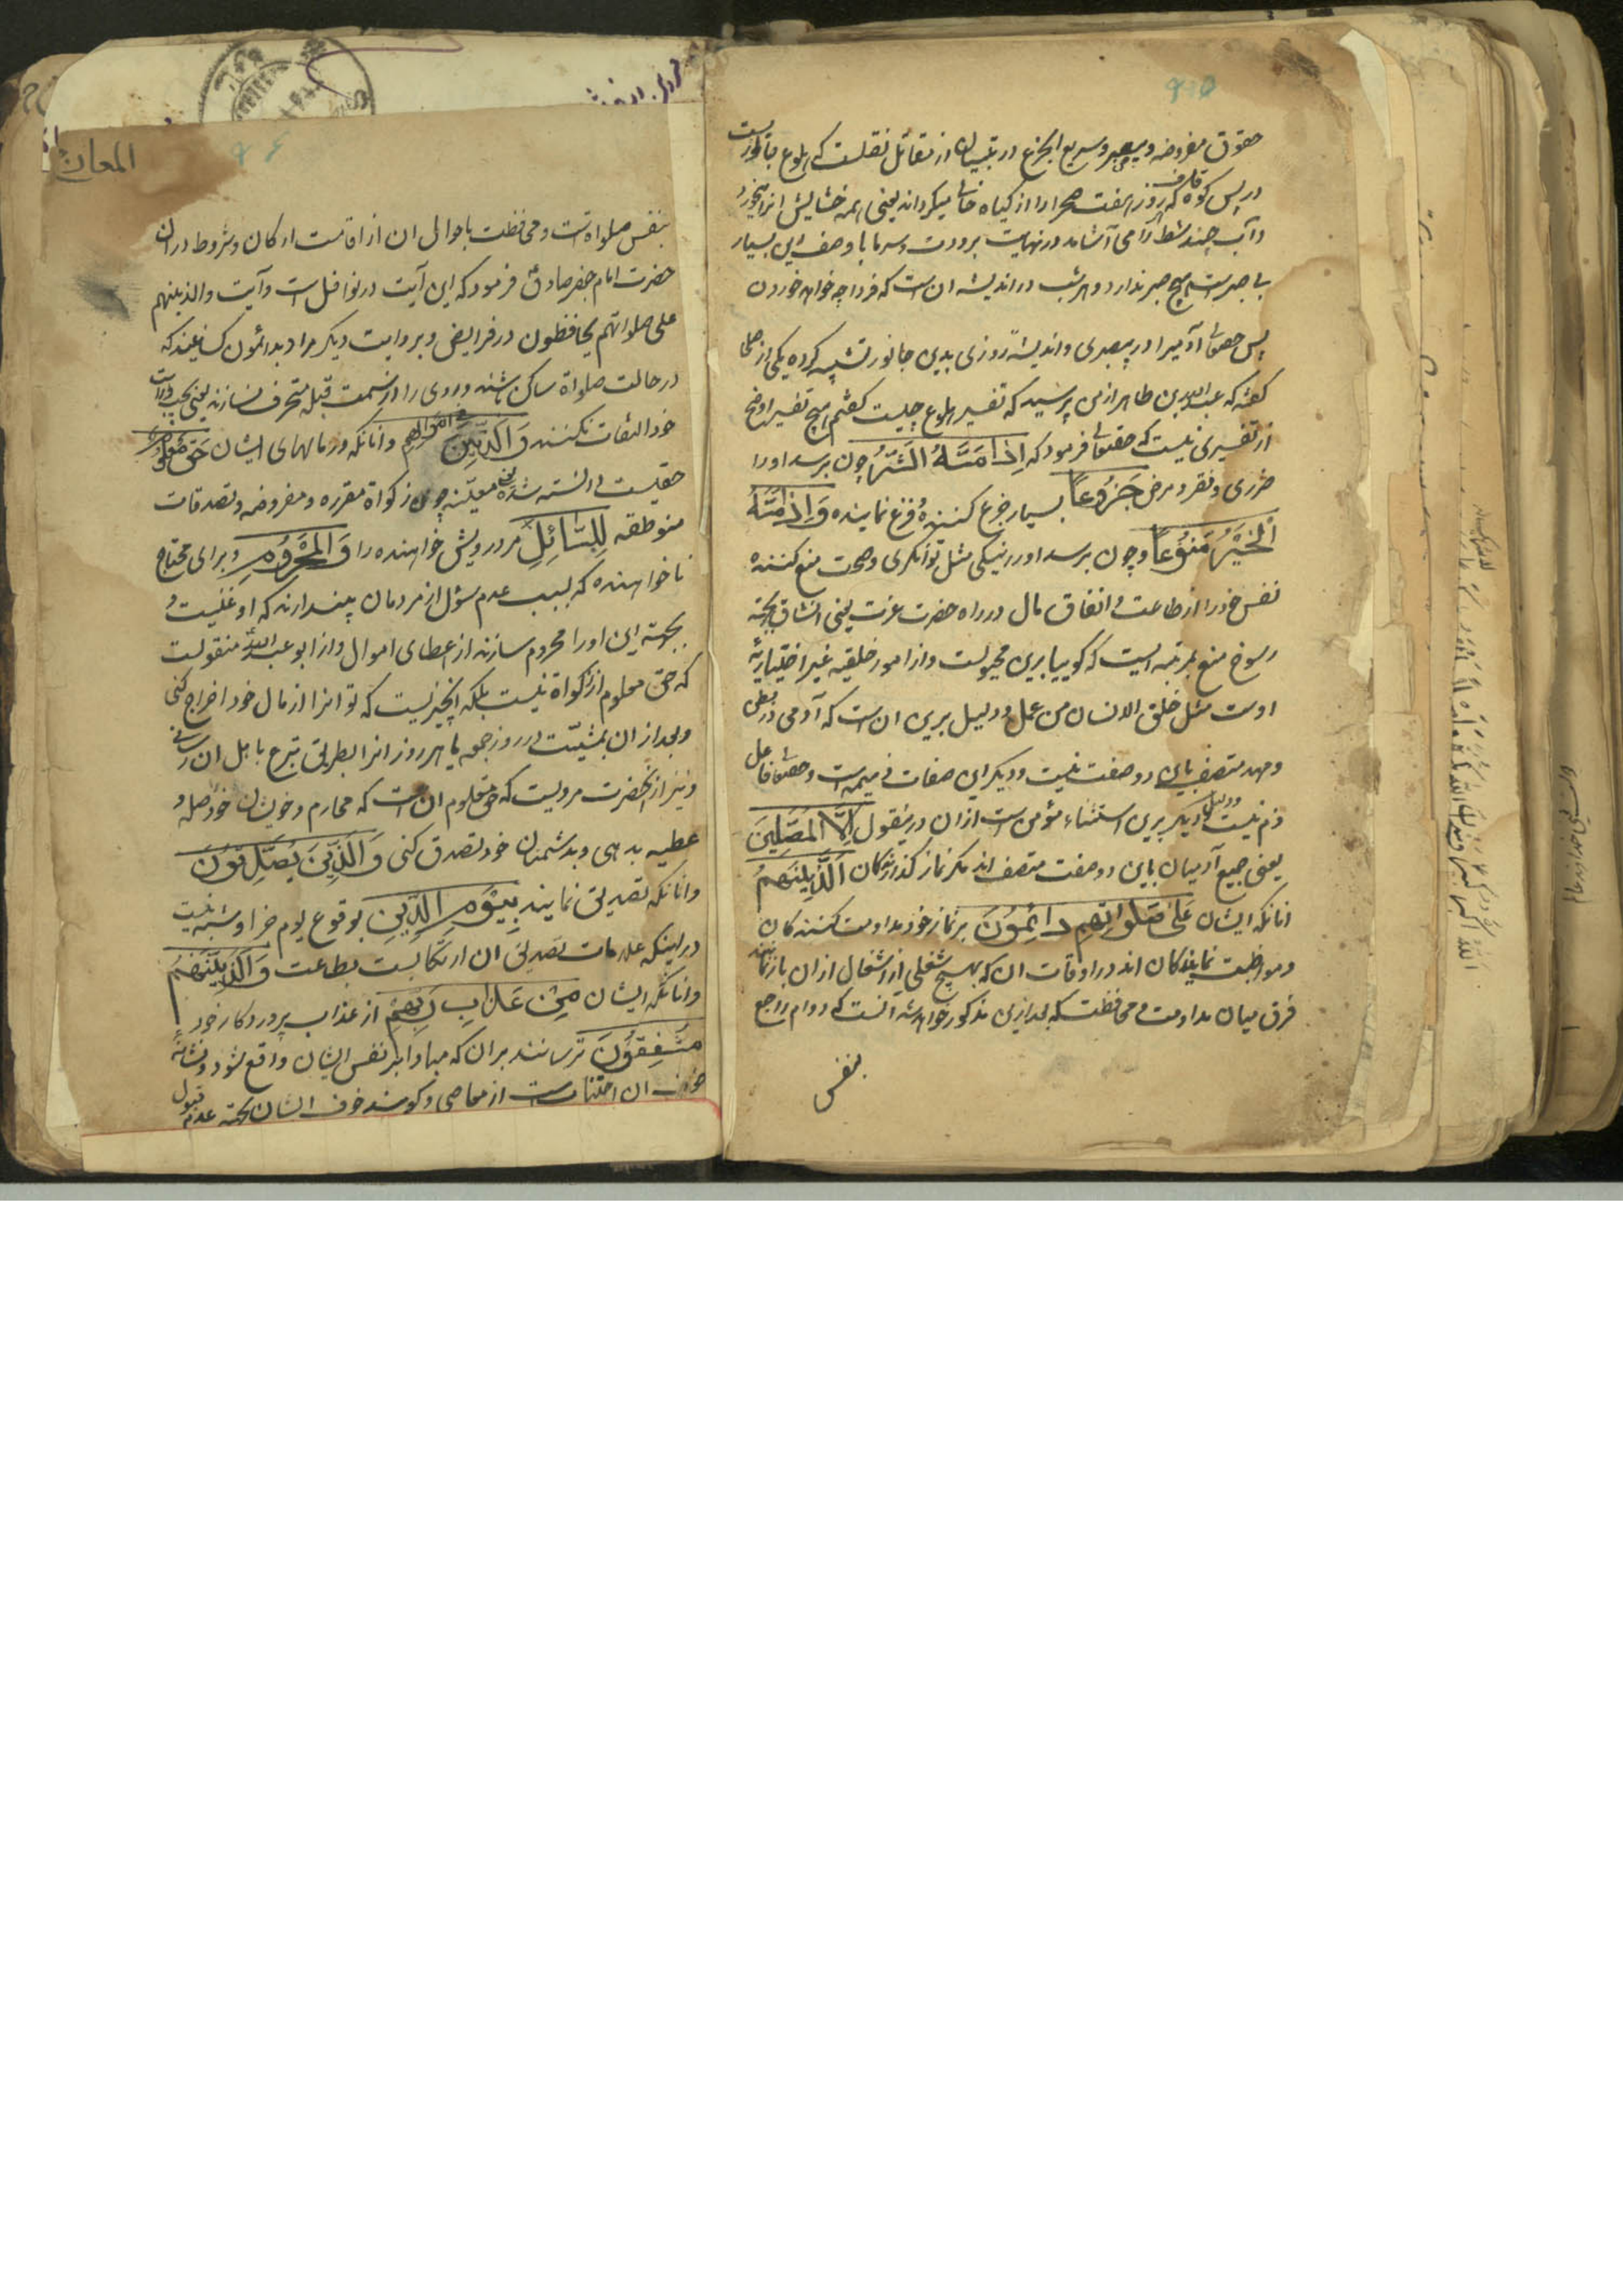 حقوق مفروضه و بیصبر و سریع الجزع در تبیان از مقاتل نقلست که هلوع جانوریست
در پس کوه قاف که هر روز هفت صحرا را از کیاه خالی میکرداند یعنی همه خشایش انرا میخورد
و آب چند شط را می آشامد در نهایت برودت و سرما با وصف این بسیار
بی صبر است هیچ صبر ندارد و هر شب در اندیشه ان است که فردا چه خواهد خوردن
پس حقتعالی آدمیرا در بیصبری و اندیشهٔ روزی بدین جانور تشبیه کرده یکی از صلحا
کفته که عبدالله بن طاهر از من پرسید که تفسیر هلوع چیست کفتم هیچ تفسیر اوضح
از تفسیری نیست که حقتعالی فرمود که اِذا مَسَّهُ الشَّرُّ چون برسد او را
ضرری و فقر و مرض جَزُوعاً بسیار جزع کننده و فزع نماینده وَاِذا مَسَّهُ
الْخَیْرُ مَنوُعاً و چون برسد او را نیکی مثل توانکری و صحت منع کننده
نفس خود را از طاعت و انفاق مال در راه حضرت عزت یعنی انشان بجهة
رسوخ منع بمرتبه ایست که کوییا برین مجبولست و از امور خلقیه غیر اختیاریه
اوست مثل خلق الانسان من عجل و دلیل برین ان است که آدمی در بطن
و مهد متصف باین دو صفت نیست و دیکر این صفات ذمیمه است و حقتعالی فاعل
ذم نیست و دلیل دیکر برین استثناء مؤمن است از ان درین قول اِلَّا الْمُصَلّینَ
یعنی جمیع آدمیان باین دو صفت متصف اند مکر نماز کذارندکان اَلَّذینَهُمْ
انانکه ایشان عَلی صَلوتِهِم دائِمُونَ بر نماز خود مداومت کننده کان
و مواظبت نمایندکان اند در اوقات ان که بهیچ شغلی از اشغال از ان باز نمانند
فرق میان مداومت و محافظت که بعد ازین مذکور خواهد شد آنست که دوام راجع
بنفس
المعارج
بنفس صلواة است و محافظت باحوال ان از اقامت ارکان و شروط در ان
حضرت امام جعفر صادق فرمود که این آیت در نوافل است و آیت والذینهم
علی صلواتهم یحافظون در فرایض و بروایت دیکر مراد بدائمون کسانیند که
در حالت صلواة ساکن باشند و روی را از سمت قبله منحرف نسازند یعنی بچپ و راست
خود التفات نکنند وَالَّذینَ فی اَمْوالِهِم و انانکه در مالهای ایشان حَقٌّ مَعْلُومٌ
حقیست دانسته شده یعنی معینه چون زکواة مقرره و مفروضه و تصدقات
موظفه لِلسّائِلِ مر درویش خواهنده را وَالْمَحْرُومِ و برای محتاج
ناخواهنده که بسبب عدم سؤل از مردمان پندارند که او غنیست و
بجهته این او را محروم سازند از اعطای اموال و از ابو عبدالله منقولست
که حق معلوم از زکواة نیست بلکه انچیزیست که تو انرا از مال خود اخراج کنی
و بعد از ان بمشیّت در روز جمعه یا هر روز انرا بطریق تبرع باهل ان رسانی
و نیز از انحضرت مرویست که حق معلوم ان است که محارم و خویشان خود صله و
عطیه بدهی و بدشمنان خود تصدق کنی وَالَّذینَ یُصَدِّقُونَ
و انانکه تصدیق نمایند بِیَوْمِ الدّینِ بوقوع یوم جزا و شبه نیست
در اینکه علامات تصدیق ان ارتکابست بطاعت وَالَّذینَهُمْ
و انانکه ایشان مِنْ عَذابِ رَبِّهِمْ از عذاب پروردکار خود
مُشْفِقُونَ ترسانند بران که مبادا بر نفس ایشان واقع شود و نشانهٔ
خوف ان اجتناب است از معاصی و کویند خوف ایشان بجهة عدم قبول